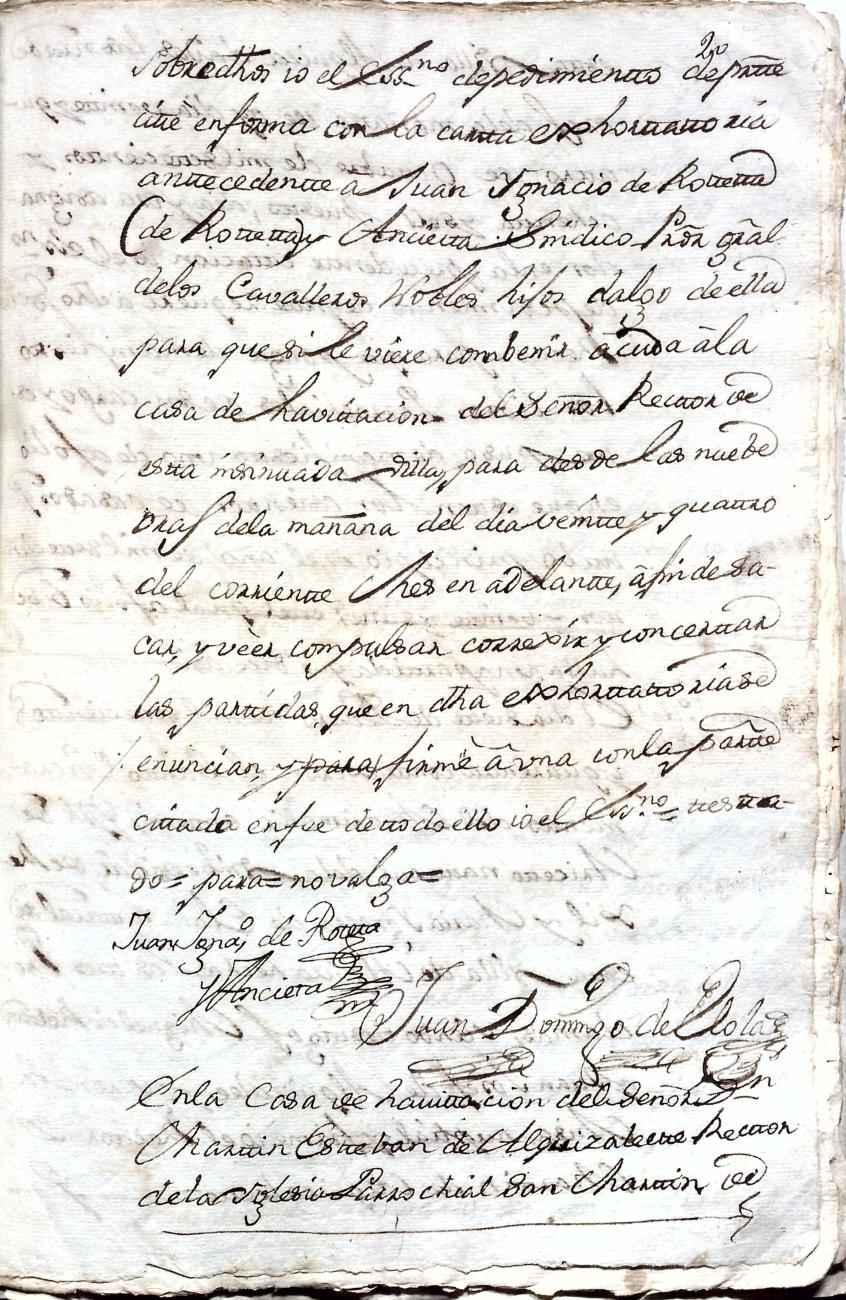 Sobredhos io el Essno depedimientto de partte
citte en forma con la cartta exhorttattoria
anttecedentte â Juan Ygnacio de Rottetta
(de Rottetta) y Anciètta Sindico Pror gral
delos Cavalleros Nobles hijos dalgo de ella
para que si le viere combenir acuda â la
casa de havittacion del Señor Recttor de
estta insinuada villa, para desde las nuebe
oras dela mañana del dia veintte y quattro
del corrientte Mes en adelantte, â fin de sa-
car, y veèr compulsar correxir y concerttar
las parttidas, que en dha exhorttattoria se
enuncian, y para firmè â una con la partte
cittada en fee de ttodo ello io el Essno = ttestta-
do = para = no valga =
Juan Ignao de Roteta
y Ancieta
Juan Domingo de Elola
En la Casa de havittacion del Señor Dn
Marttin Estteban de Alquizalette Recttor
de la Yglesia Parrochial San Marttin de